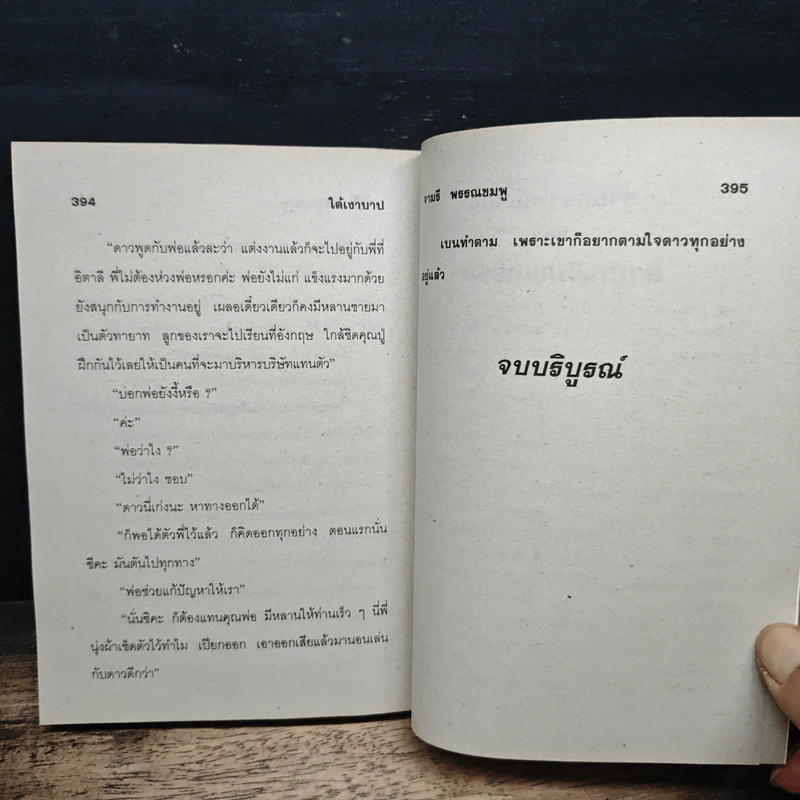 394 ใต้เงาบาป
“ดาวพูดกับพ่อแล้วละว่า แต่งงานแล้วก็จะไปอยู่กับพี่ที่
อิตาลี พี่ไม่ต้องห่วงพ่อหรอกค่ะ พ่อยังไม่แก่ แข็งแรงมากด้วย
ยังสนุกกับการทำงานอยู่ เผลอเดี๋ยวเดียวก็คงมีหลานชายมา
เป็นตัวทายาท ลูกของเราจะไปเรียนที่อังกฤษ ใกล้ชิดคุณปู่
ฝึกกันไว้เลยให้เป็นคนที่จะมาบริหารบริษัทแทนตัว”
“บอกพ่อยังงี้หรือ ?”
“ค่ะ”
“พ่อว่าไง ?”
“ไม่ว่าไง ชอบ”
“ดาวนี่เก่งนะ หาทางออกได้”
“ก็พอได้ตัวพี่ไว้แล้ว ก็คิดออกทุกอย่าง ตอนแรกนั่น
ซีคะ มันตันไปทุกทาง”
“พ่อช่วยแก้ปัญหาให้เรา”
“นั่นซิคะ ก็ต้องแทนคุณพ่อ มีหลานให้ท่านเร็ว ๆ นี่พี่
นุ่งผ้าเช็ดตัวไว้ทำไม เปียกออก เอาออกเสียแล้วมานอนเล่น
กับดาวดีกว่า”
จามรี พรรณชมพู 395
เบนทำตาม เพราะเขาก็อยากตามใจดาวทุกอย่าง
อยู่แล้ว
จบบริบูรณ์